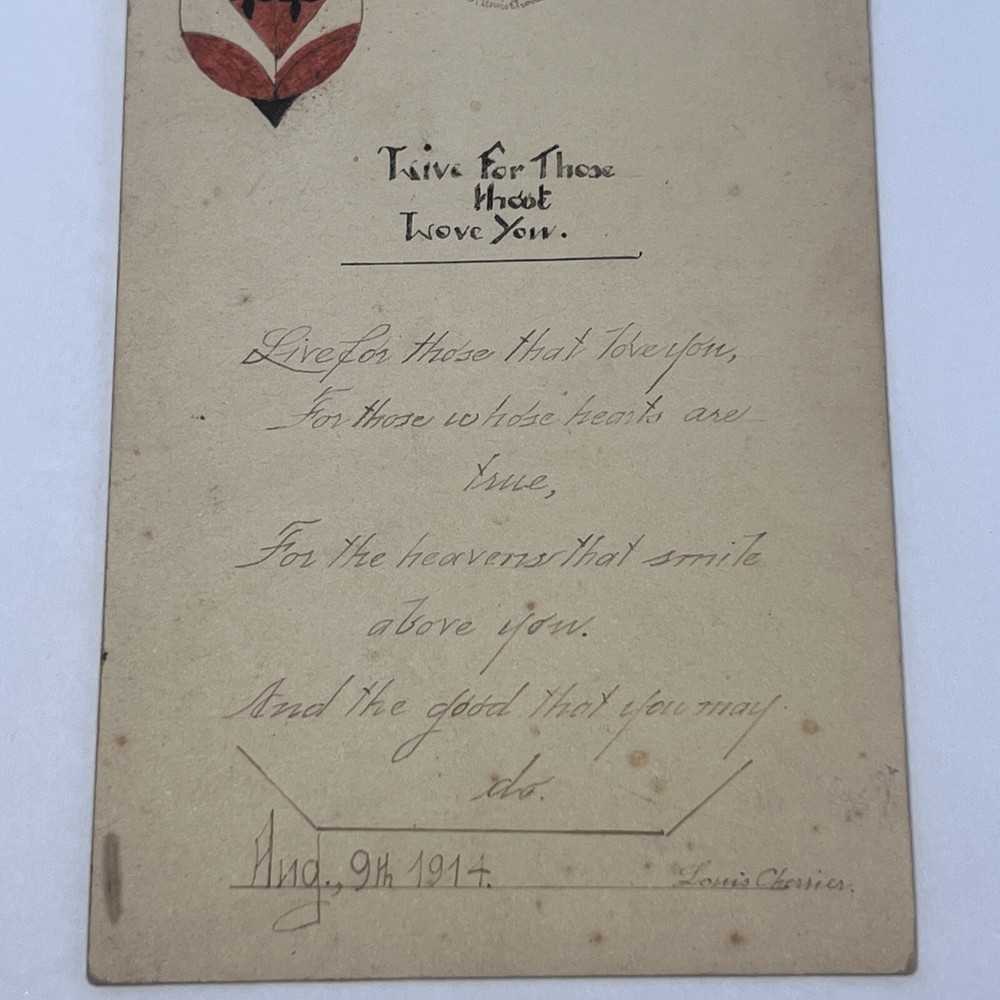 Live For Those
that
Love You.
Live for those that love you,
For those whose hearts are
true,
For the heavens that smile
above you.
And the good that you may
do.
Aug., 9th 1914.
Louis Cherrier.